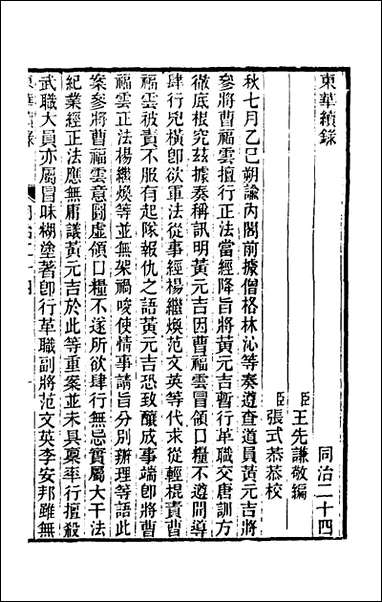 東華續錄
同治二十四
臣王先謙敬編
臣張式恭恭校
秋七月乙巳朔諭內閣前據僧格林沁等奏遵查道員黃元吉將
參將曹福雲擅行正法當經降旨將黃元吉暫行革職交唐訓方
徹底根究茲據奏稱訊明黃元吉因曹福雲冒領口糧不遵開導
肆行兇橫卽欲軍法從事經楊繼煥范文英等代求從輕棍責曹
福雲被責不服有起隊報仇之語黃元吉恐致釀成事端卽將曹
福雲正法楊繼煥等並無架禍唆使情事請旨分別辦理等語此
案參將曹福雲意圖虛領口糧不遂所欲肆行無忌實屬大干法
紀業經正法應無庸議黃元吉於此等重案並未具稟率行擅殺
武職大員亦屬冒昧糊塗著卽行革職副將范文英李安邦雖無
東華續錄 同治二十四 一